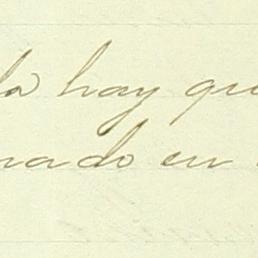 la hay que
nado en